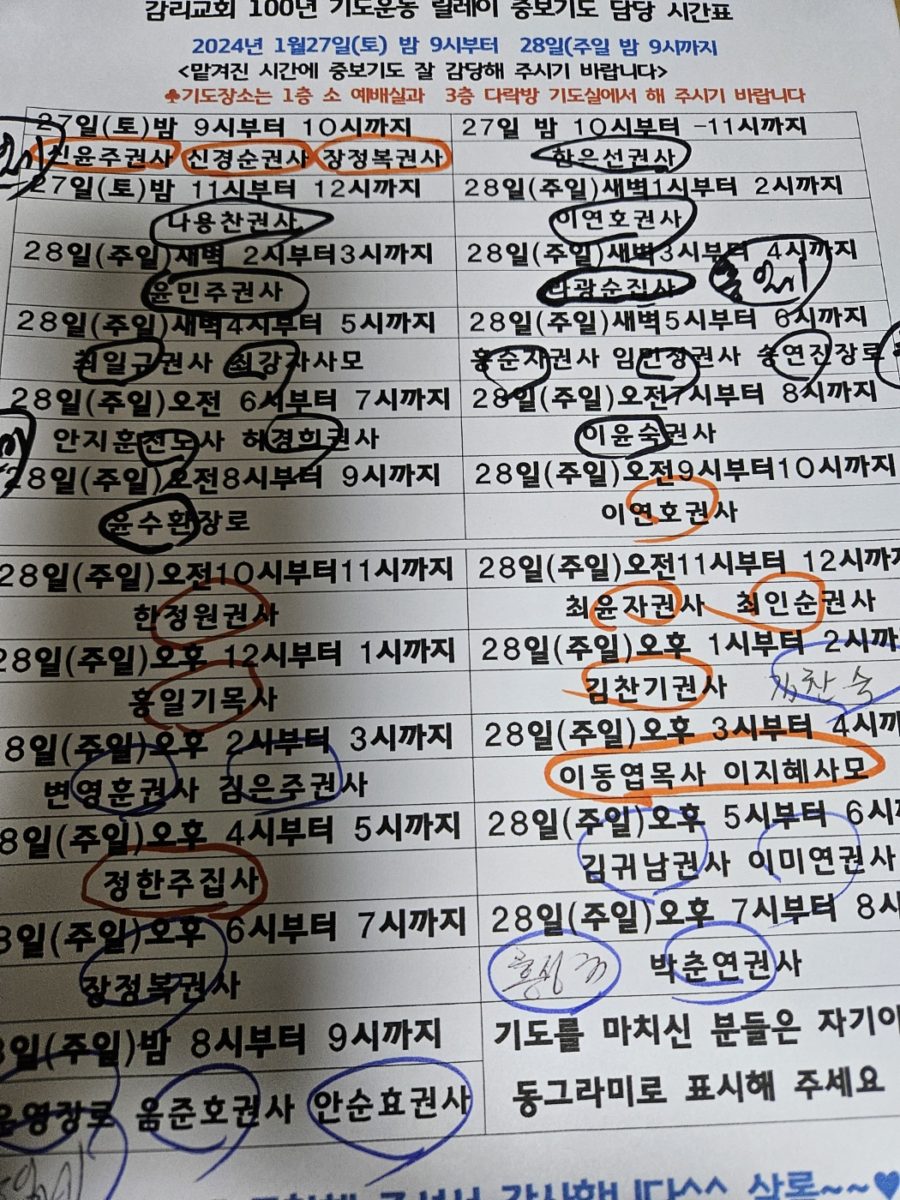 감리교회 100년 기도운동 릴레이 중보기도 담당 시간표
2024년 1월27일(토) 밤 9시부터 28일(주일 밤 9시까지
<맡겨진 시간에 중보기도 잘 감당해 주시기 바랍니다>
♣기도장소는 1층 소 예배실과 3층 다락방 기도실에서 해 주시기 바랍니다
27일(토)밤 9시부터 10시까지
27일 밤 10시부터 -11시까지
신윤주권사 신경순권사 장정복권사
한은선권사
27일(토)밤 11시부터 12시까지
28일(주일)새벽1시부터 2시까지
나용찬권사
이연호권사
28일(주일)새벽 2시부터3시까지
28일(주일)새벽3시부터 4시까지
윤민주권사
광순집사
28일(주일)새벽4시부터 5시까지
28일(주일)새벽5시부터 6시까지
최일규권사 최강자사모
홍순자권사 임민정권사 송연진장로
28일(주일)오전 6시부터 7시까지
28일(주일)오전7시부터 8시까지
안지훈전도사 허경희권사
이윤숙권사
28일(주일)오전8시부터 9시까지
28일(주일)오전9시부터10시까지
윤수환장로
이연호권사
28일(주일)오전10시부터11시까지
28일(주일)오전11시부터 12시까지
한정원권사
최윤자권사 최인순권사
28일(주일)오후 12시부터 1시까지
28일(주일)오후 1시부터 2시까지
홍일기목사
김찬기권사 김찬숙
8일(주일)오후 2시부터 3시까지
28일(주일)오후 3시부터 4시까
변영훈권사 김은주권사
이동엽목사 이지혜사모
8일(주일)오후 4시부터 5시까지
28일(주일)오후 5시부터 6시
정한주집사
김귀남권사 이미연권사
8일(주일)오후 6시부터 7시까지
28일(주일)오후 7시부터 8시
장정복권사
박춘연권사
8일(주일)밤 8시부터 9시까지
기도를 마치신 분들은 자기이
동그라미로 표시해 주세요
윤영장로 움준호권사 안순효권사